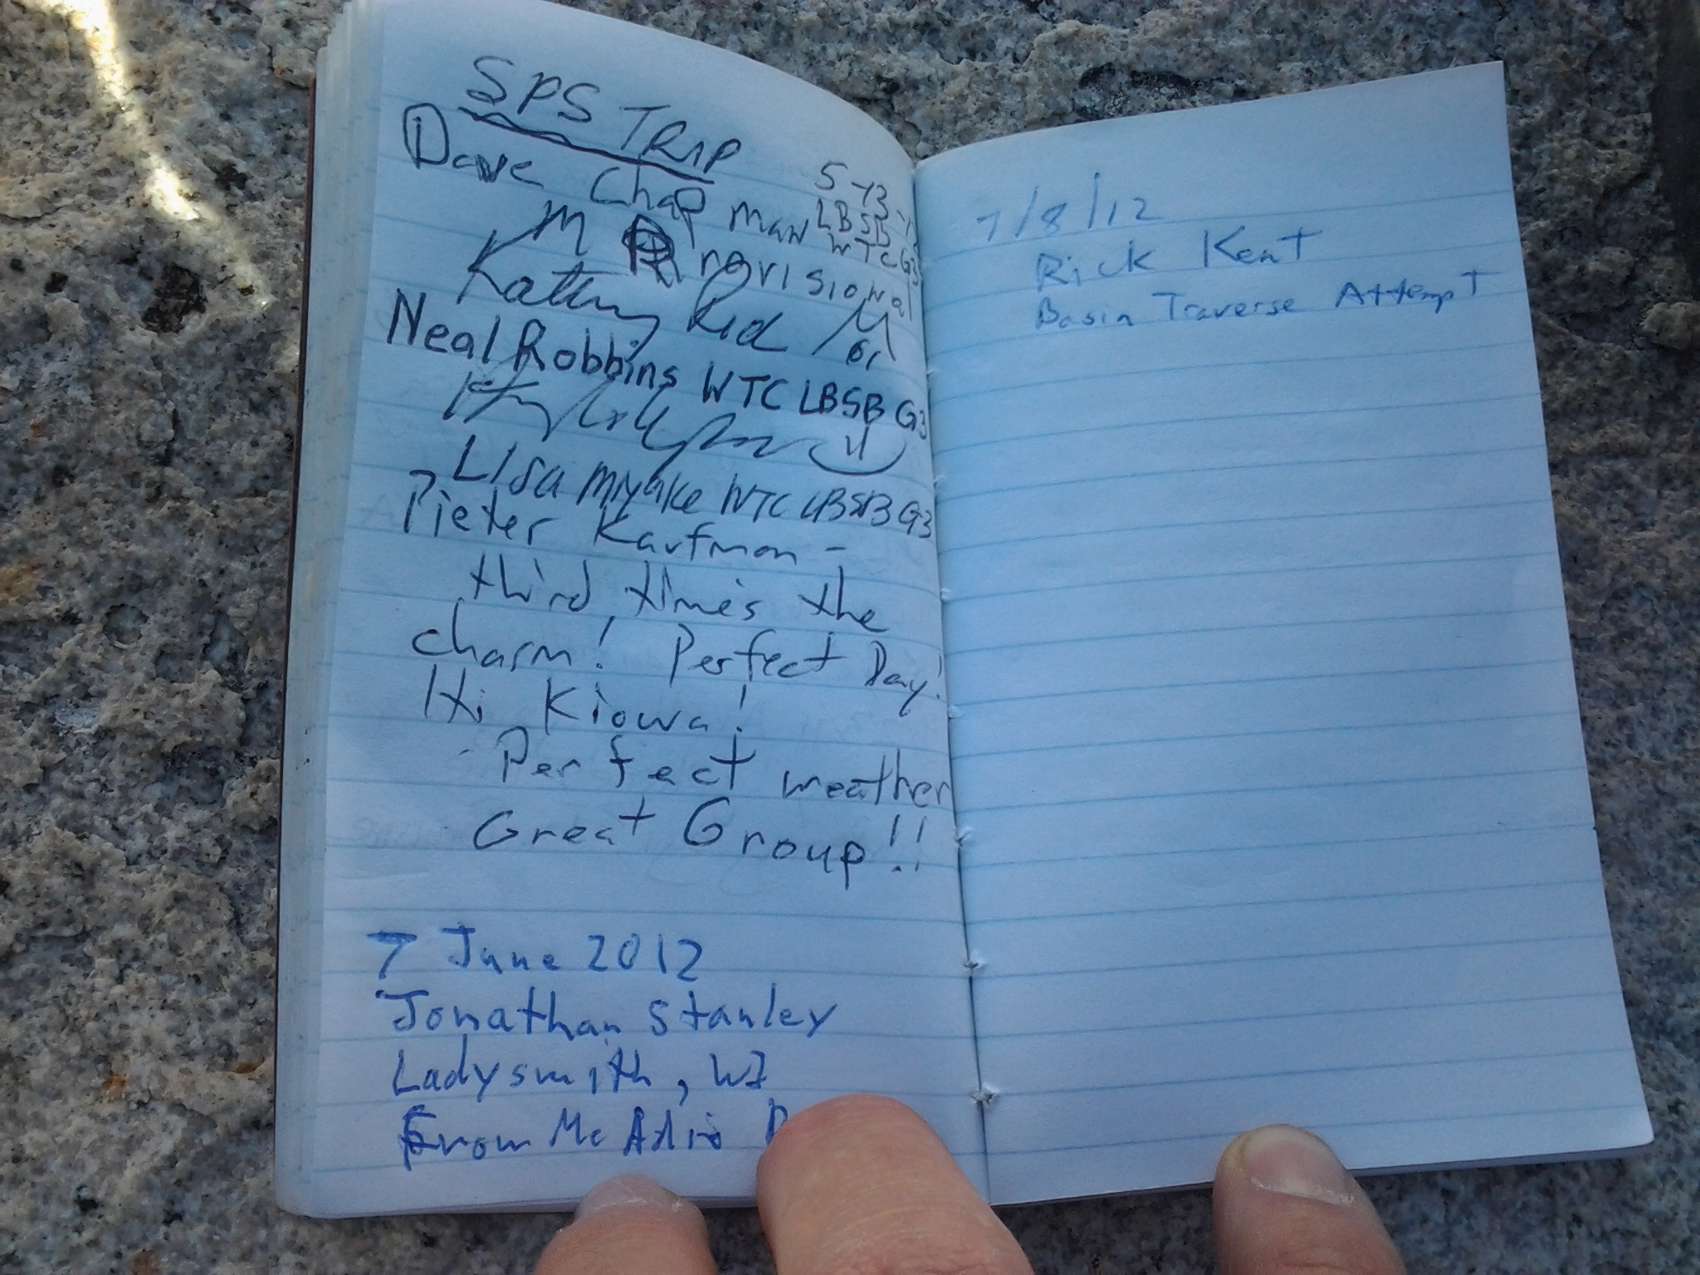 SPS TRIP
5-13-12
Dave Chapman LBSB
WTC G3
M Provisional
Kathy Rid M
or
Neal Robbins WTC LBSB G3
Lisa Miyake WTC LBSB G3
Pieter Kaufman -
third time's the
charm! Perfect Day!
Hi Kiowa!
Perfect weather
Great Group!!
7 June 2012
Jonathan Stanley
Ladysmith, WI
From Mc Adie
7/8/12
Rick Kent
Basin Traverse Attempt